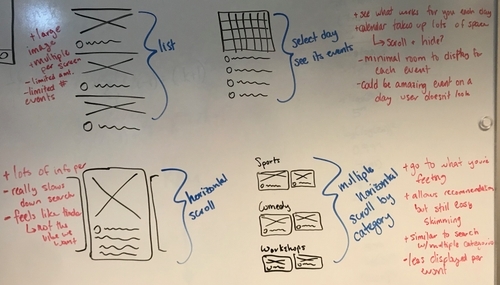 + large
image
+ multiple
per screen
- limited amt.
- limited #
events
list
select day
see its events
+ see what works for you each day
- calendar takes up lots of space
↳ scroll + hide?
- minimal room to display for
each event
- could be amazing event on a
day user doesn't look
+ lots of info per
- really slows
down search
- feels like tinder
↳ not the
vibe we
want
horizontal
scroll
Sports
Comedy
Workshops
multiple
horizontal
scroll by
category
+ go to what you're
feeling
+ allows recommendation
but still easy
skimming
+ similar to search
w/ multiple categories
- less displayed per
event